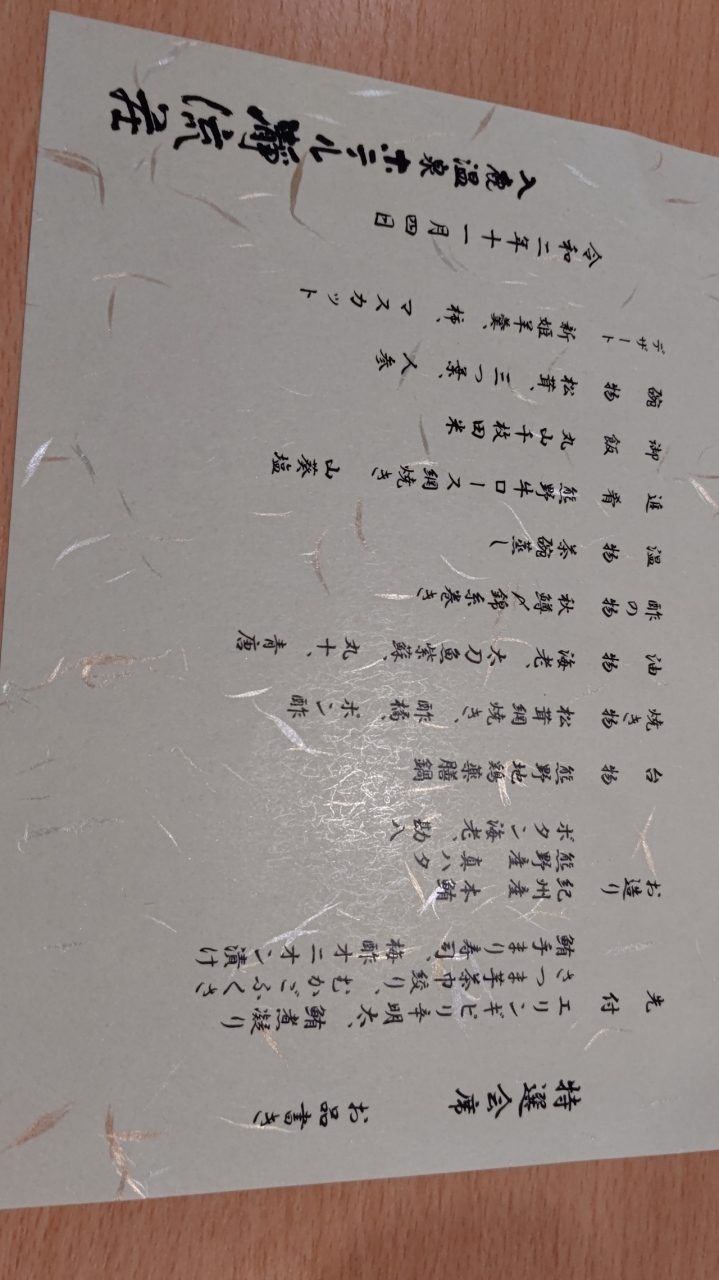 特選会席
お品書き
先付
エリンギピリ辛明太、鮪煮凝り
さつま芋茶巾絞り、むかごふくさ
鮪手まり寿司、梅酢オニオン漬け
お造り
紀州産本鮪
熊野産真ハタ
ボタン海老、勘八
台物
熊野地鶏薬膳鍋
焼き物
松茸網焼き、酢橘、ポン酢
油物
海老、太刀魚紫蘇、丸十、青唐
酢の物
秋鱒〆錦糸巻き
温物
茶碗蒸し
進肴
熊野牛ロース網焼き 山葵塩
御飯
丸山千枚田米
碗物
松茸、三つ葉、人参
デザート
新姫羊羹、柿、マスカット
令和二年十一月四日
入鹿温泉ホテル瀞流荘